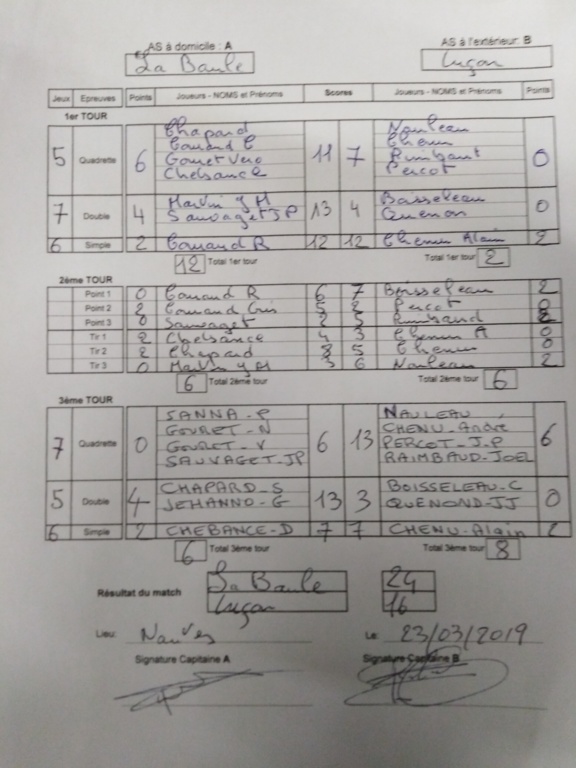 AS à domicile : A AS à l'extérieur: B
La Baule Luçon
Jeux Epreuves Points Joueurs - NOMS et Prénoms Scores Joueurs - NOMS et Prénoms Points
1er TOUR
5 Quadrette 6 Chapard 11 7 Nauleau 0
Couand C Chenu
Gouret Vero Rimbaut
Chebance Percot
7 Double 4 Martin J M 13 4 Boisseleau 0
Sauvaget JP Quenon
6 Simple 2 Couand R 12 12 Chenu Alain 2
12 Total 1er tour Total 1er tour 2
2ème TOUR
Point 1 0 Couand R 6 7 Boisseleau 2
Point 2 2 Couand Cris Percot 0
Point 3 0 Sauvaget Rimbaud 2
Tir 1 2 Chebance 4 3 Chenu A 0
Tir 2 2 Chapard 5 Chenu 0
Tir 3 0 Martin J M 3 6 Nauleau 2
6 Total 2ème tour Total 2ème tour 6
3ème TOUR
7 Quadrette 0 SANNA-P 6 13 NAULEAU 6
GOURET-N CHENU-André
GOURET-V PERCOT-J.P
SAUVAGET-JP RAIMBAUD-JOEL
5 Double 4 CHAPARD-S 13 3 BOISSELEAU-C 0
JEHANNO-G QUENOND-JJ
6 Simple 2 CHEBANCE-D 7 7 CHENU-Alain 2
6 Total 3ème tour Total 3ème tour 8
Résultat du match La Baule 24
Luçon 16
Lieu: Le: 23/03/2019
Signature Capitaine A Signature Capitaine B